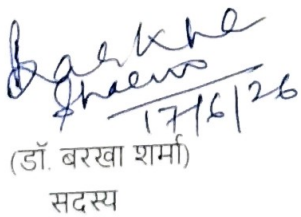 Barkha
Sharma
17/6/26
(डॉ. बरखा शर्मा)
सदस्य